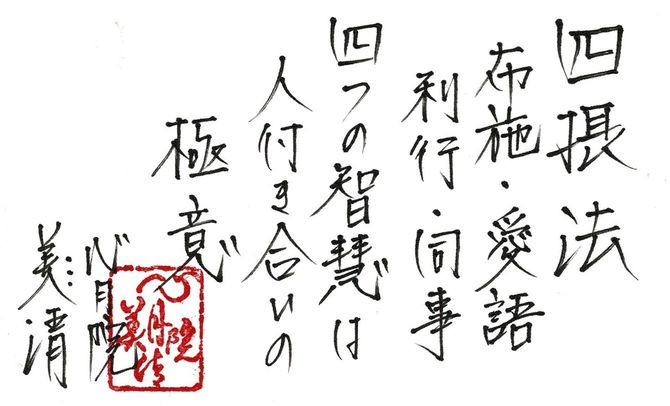 四摂法
布施・愛語
利行・同事
四つの智慧は
人付き合いの
極意
心月院
美清
心月院
美清